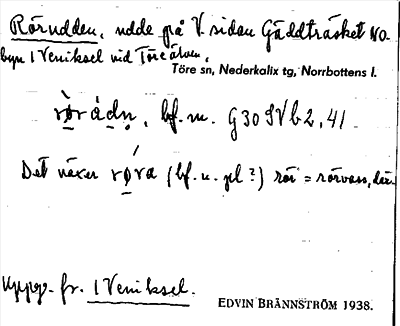 Rörudden, udde på V. sidan Gäddträsket NO.
byn 1 Veniksel vid Töre älven,
Töre sn, Nederkalix tg, Norrbottens l.
bf. m. G30SVb2,41
Det växer (bf. n. pl?) rör = rörvass, där.
Uppg. fr. 1 Veniksel.
EDVIN BRÄNNSTRÖM 1938.